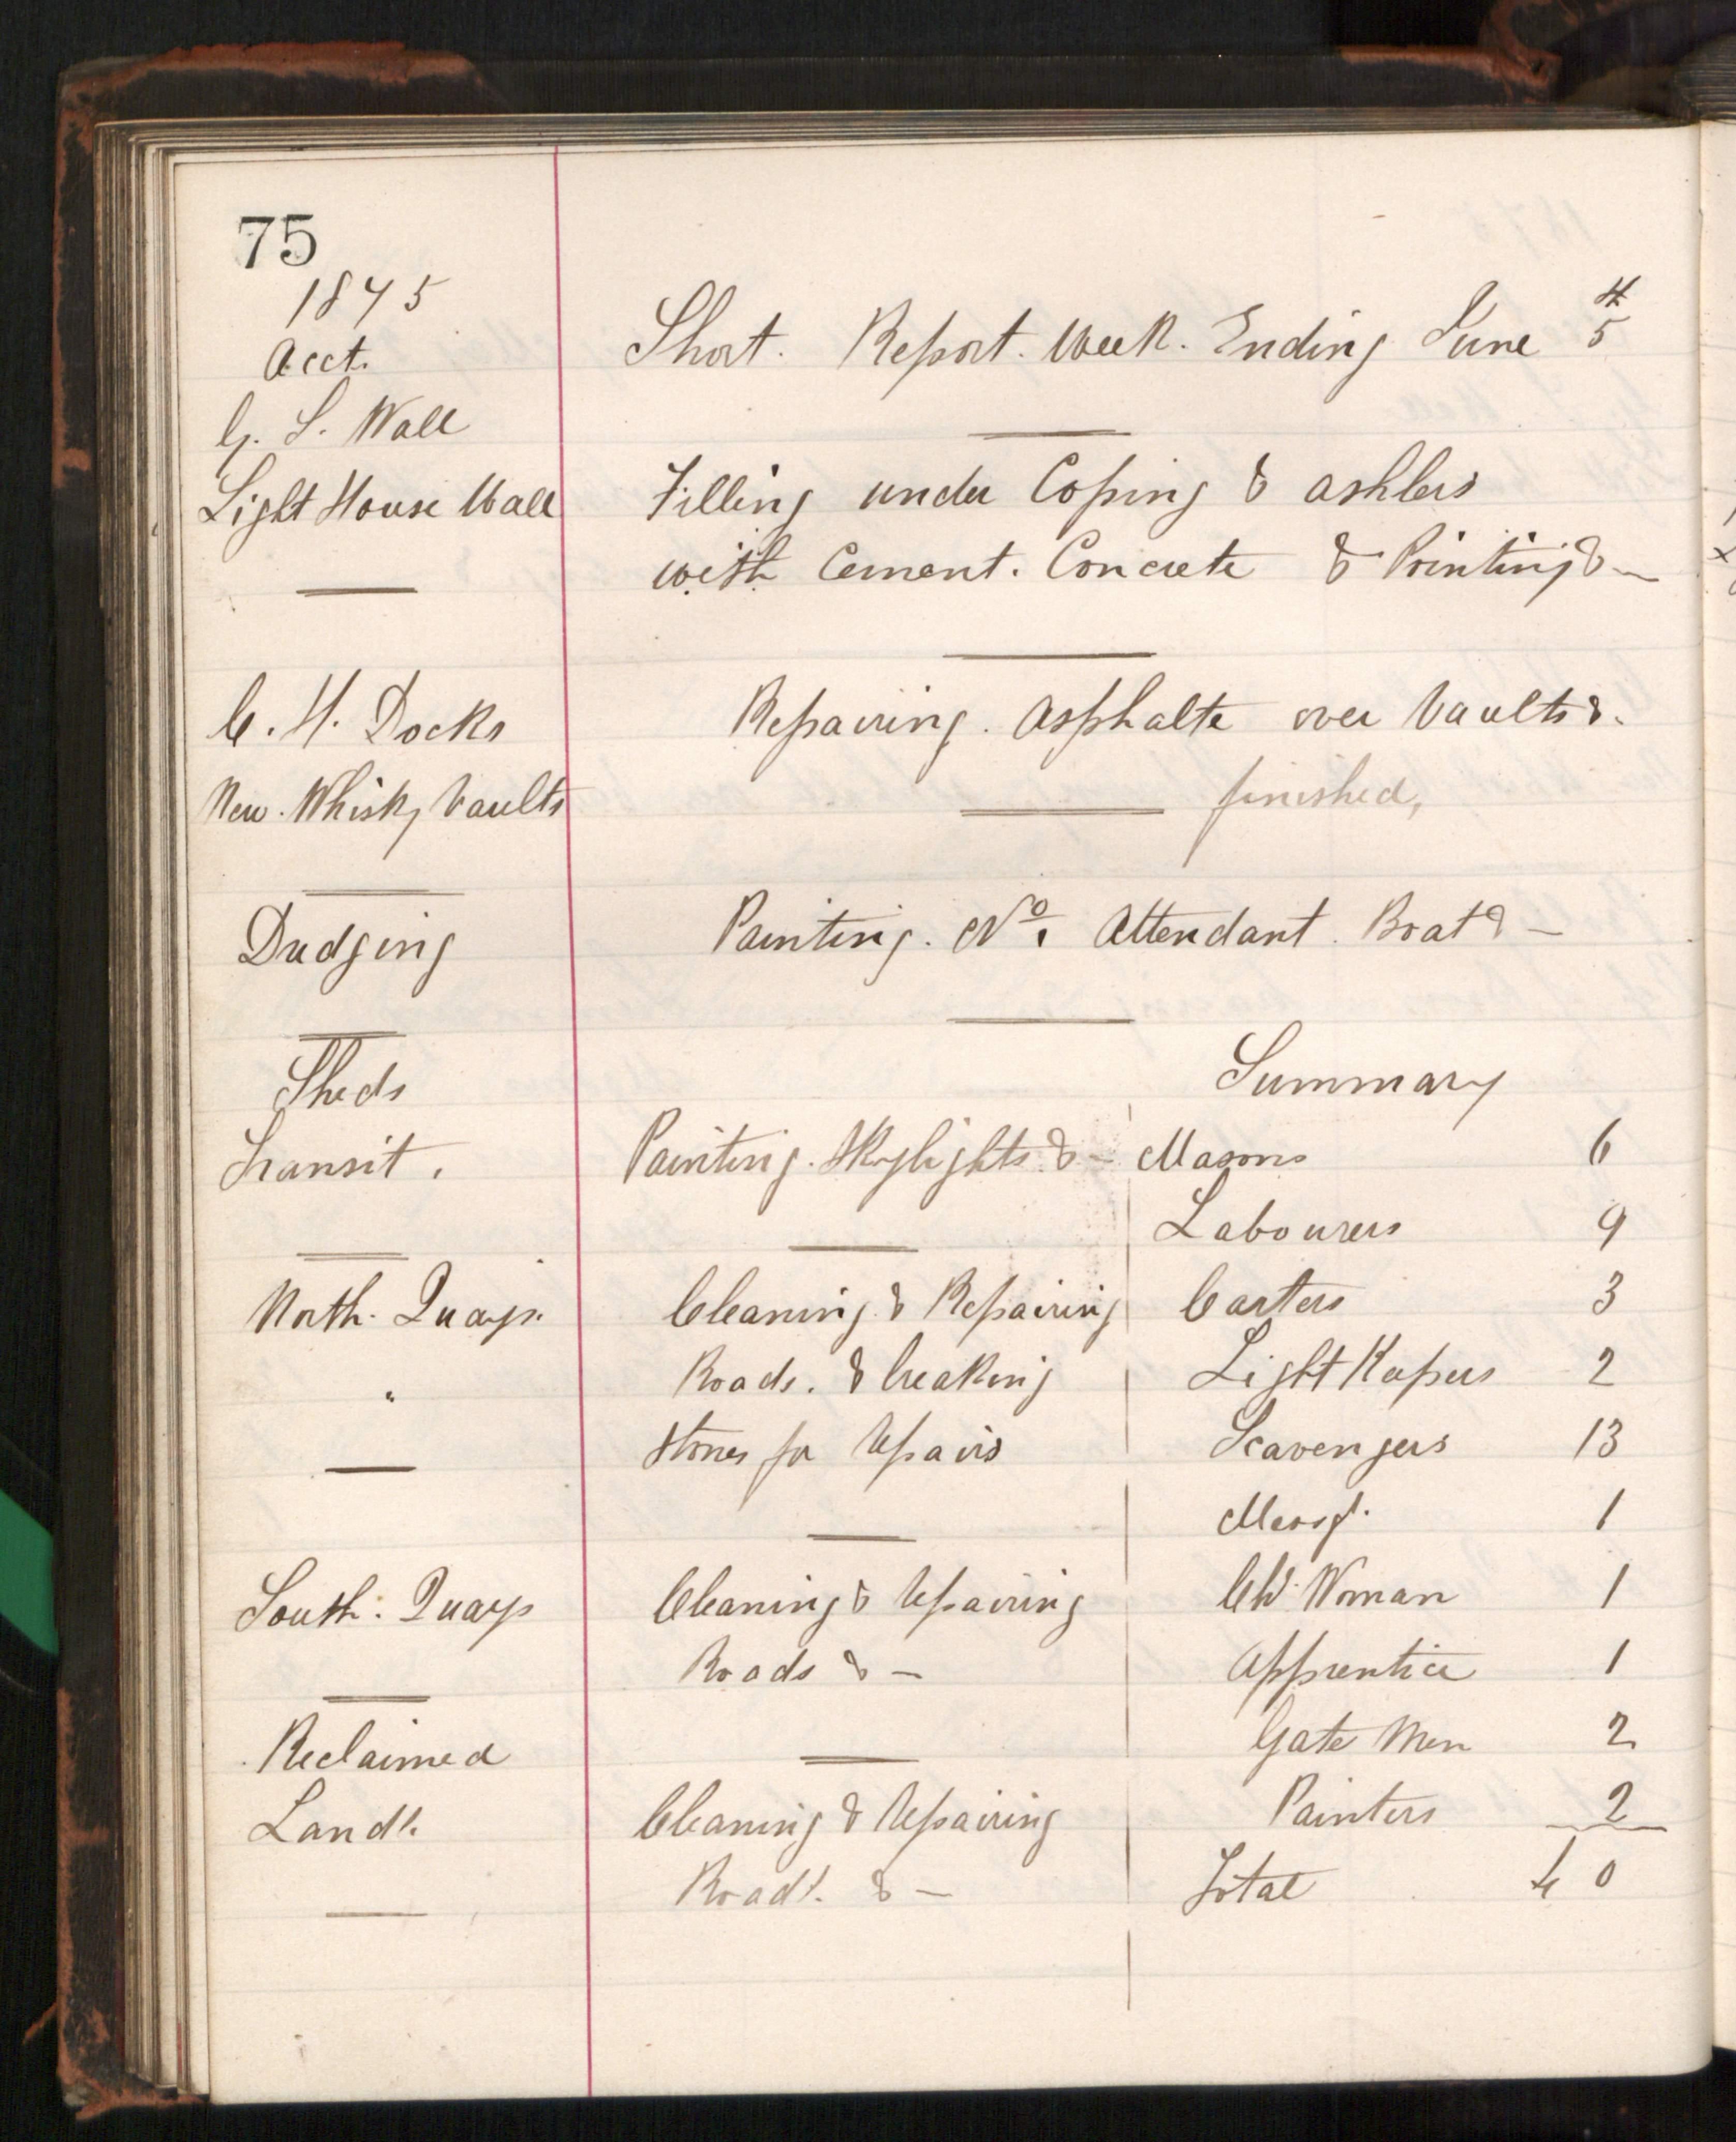 75
1875
Acct.
Short. Report. Week. Ending June 5th
G. S. Wall
Light House Wall
Filling under Coping & ashlers
with Cement. Concrete & Pointing &—
C. H. Docks
Repairing. Asphalte over Vaults &.
New. Whisky Vaults
finished,
Dredging
Painting. No. 1 Attendant. Boat & —
Sheds
Summary
Transit.
Painting. Skylights. & —
Masons 6
Labourers 9
North. Quays.
Cleaning. & Repairing
Carters 3
"
Roads. & breaking
Light Keepers 2
Stones for repairs
Scavengers 13
Messgr. 1
South. Quays
Cleaning & repairing
Ch. Woman 1
Roads & —
Apprentice 1
Reclaimed
Gate Men 2
Land.
Cleaning & repairing
Painters 2
Roads. & —
Total 40